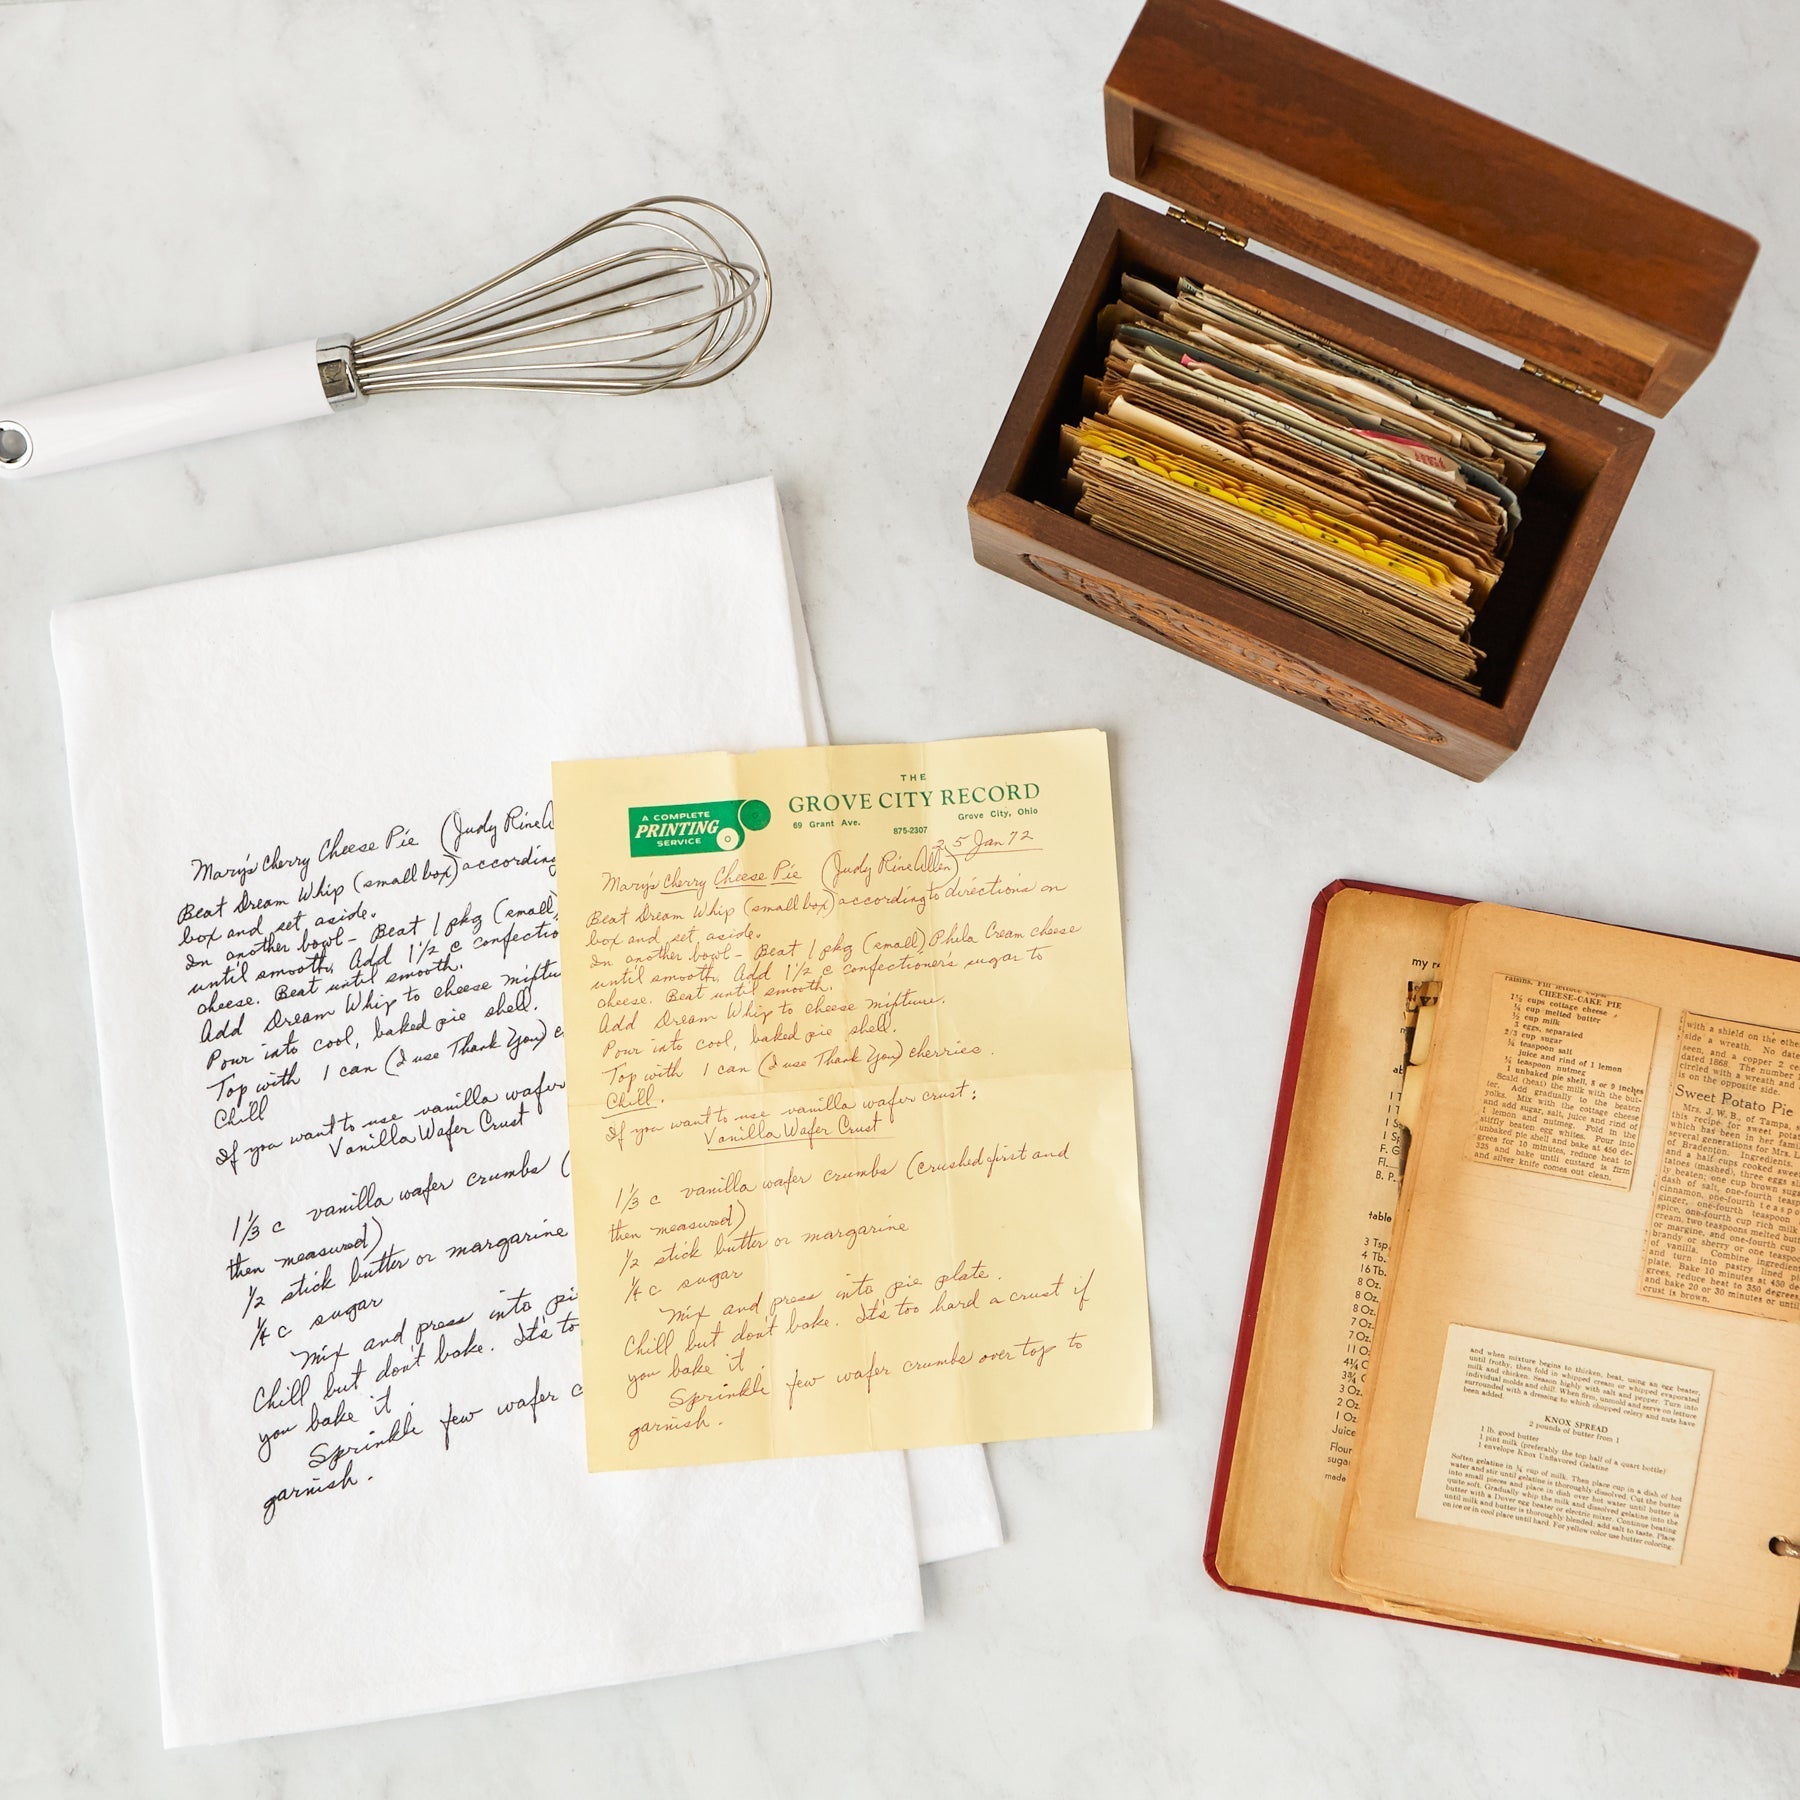 Mary's Cherry Cheese Pie (Judy Rine A
Beat Dream Whip (small box) according
box and set aside.
In another bowl - Beat 1 pkg (small)
until smooth. Add 1 1/2 c confectio
cheese. Beat until smooth.
Add Dream Whip to cheese mixtu
Pour into cool, baked pie shell.
Top with 1 can (I use Thank You) c
Chill
If you want to use vanilla wafer
Vanilla Wafer Crust
1 1/3 c vanilla wafer crumbs (
then measured)
1/2 stick butter or margarine
1/4 c sugar
Mix and press into pi
Chill but don't bake. It's to
you bake it.
Sprinkle few wafer c
garnish.
A COMPLETE
PRINTING
SERVICE
THE
GROVE CITY RECORD
69 Grant Ave. 875-2307 Grove City, Ohio
25 Jan 72
Mary's Cherry Cheese Pie (Judy Rine Allen)
Beat Dream Whip (small box) according to directions on
box and set aside.
In another bowl - Beat 1 pkg (small) Phila Cream cheese
until smooth. Add 1 1/2 c confectioner's sugar to
cheese. Beat until smooth.
Add Dream Whip to cheese mixture.
Pour into cool, baked pie shell.
Top with 1 can (I use Thank You) cherries.
Chill.
If you want to use vanilla wafer crust:
Vanilla Wafer Crust
1 1/3 c vanilla wafer crumbs (crushed first and
then measured)
1/2 stick butter or margarine
1/4 c sugar
Mix and press into pie plate.
Chill but don't bake. It's too hard a crust if
you bake it.
Sprinkle few wafer crumbs over top to
garnish.
B
C
D
my r
table
3 Tsp
4 Tb.
16 Tb.
8 Oz.
8 Oz.
8 Oz.
7 Oz.
7 Oz.
11 O
4¼ C
3¾ C
3 Oz
2 Oz
1 Oz
Juice
Flour
sugar
made
CHEESE-CAKE PIE
1½ cups cottage cheese
¼ cup melted butter
½ cup milk
3 eggs, separated
2/3 cup sugar
¼ teaspoon salt
juice and rind of 1 lemon
¼ teaspoon nutmeg
1 unbaked pie shell, 8 or 9 inches
Scald (heat) the milk with the but-
ter. Add gradually to the beaten
yolks. Mix with the cottage cheese
and add sugar, salt, juice and rind of
1 lemon and nutmeg. Fold in the
stiffly beaten egg whites. Pour into
unbaked pie shell and bake at 450 de-
grees for 10 minutes, reduce heat to
325 and bake until custard is firm
and silver knife comes out clean.
with a shield on the othe
side a wreath. No date
seen, and a copper 2 ce
dated 1868. The number
circled with a wreath and
is on the opposite side.
Sweet Potato Pie
Mrs. J. W. B., of Tampa, s
this recipe for sweet potat
which has been in her famil
several generations for Mrs. L
of Bradenton. Ingredients.
and a half cups cooked swee
tatoes (mashed), three eggs sl
ly beaten; one cup brown suga
dash of salt, one-fourth teasp
cinnamon, one-fourth teaspo
ginger, one-fourth teaspoon
spice, one-fourth cup rich milk
cream, two teaspoons melted butt
or margine, and one-fourth cup
brandy or sherry or one teaspoo
of vanilla. Combine ingredien
and turn into pastry lined pi
plate. Bake 10 minutes at 450 de
grees, reduce heat to 350 degrees
and bake 20 or 30 minutes or until
crust is brown.
and when mixture begins to thicken, beat, using an egg beater,
until frothy, then fold in whipped cream or whipped evaporated
milk and chicken. Season highly with salt and pepper. Turn into
individual molds and chill. When firm, unmold and serve on lettuce
surrounded with a dressing to which chopped celery and nuts have
been added.
KNOX SPREAD
2 pounds of butter from 1
1 lb. good butter
1 pint milk (preferably the top half of a quart bottle)
1 envelope Knox Unflavored Gelatine
Soften gelatine in ¼ cup of milk. Then place cup in a dish of hot
water and stir until gelatine is thoroughly dissolved. Cut the butter
into small pieces and place in dish over hot water until butter is
quite soft. Gradually whip the milk and dissolved gelatine into the
butter with a Dover egg beater or electric mixer. Continue beating
until milk and butter is thoroughly blended; add salt to taste. Place
on ice or in cool place until hard. For yellow color use butter coloring.